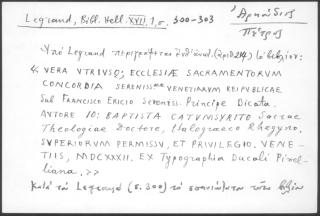 Legrand, Bibl. Hell. XVII, 1, σ. 300-303
Ἀρκούδιος
Πέτρος
Ὑπὸ Legrand περιγράφεται ἐνθ' ἀνωτ. (ἀριθ. 214) τὸ βιβλίον:
« VERA UTRIUSQ; ECCLESIÆ SACRAMENTORUM
CONCORDIA SERENISSᴹᴬᴱ VENETIARUM REIPUBLICAE
Sub Francisco Ericio Sereniss. Principe Dicata.
AUTORE IO: BAPTISTA CATUMSYRITO Sacrae
Theologiae Doctore, Italograeco Rhegyno,
SUPERIORUM PERMISSU, ET PRIVILEGIO. VENE-
TIIS, MDCXXXII. EX Typographia Ducali Pinel-
liana. >>
Κατὰ τὸν Legrand (σ. 300) τὸ σπανιώτατον τοῦτο βιβλίον